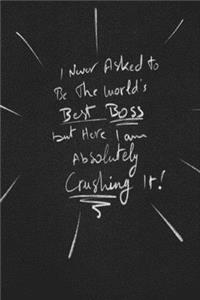 I Never Asked to
Be The World's
Best Boss
but Here I am
Absolutely
Crushing It!